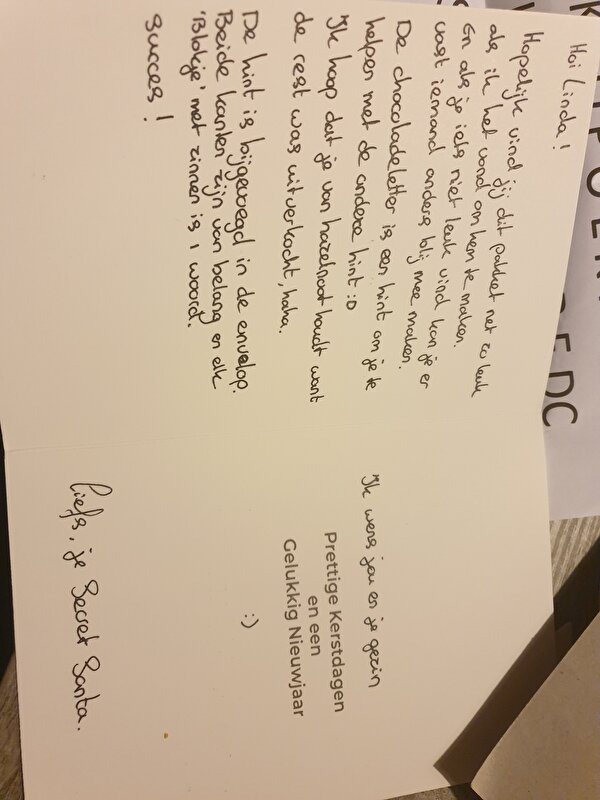 Hoi Linda!
Hopelijk vind jij dit pakket net zo leuk
als ik het vond om hem te maken.
En als je iets niet leuk vind kan je er
vast iemand anders blij mee maken.
De chocoladeletter is een hint om je te
helpen met de andere hint :D
Ik hoop dat je van hazelnoot houdt want
de rest was uitverkocht, haha.
De hint is bijgevoegd in de envelop.
Beide kanten zijn van belang en elk
'Blokje' met zinnen is 1 woord.
Succes!
Ik wens jou en je gezin
Prettige Kerstdagen
en een
Gelukkig Nieuwjaar
:)
Liefs, je Secret Santa.